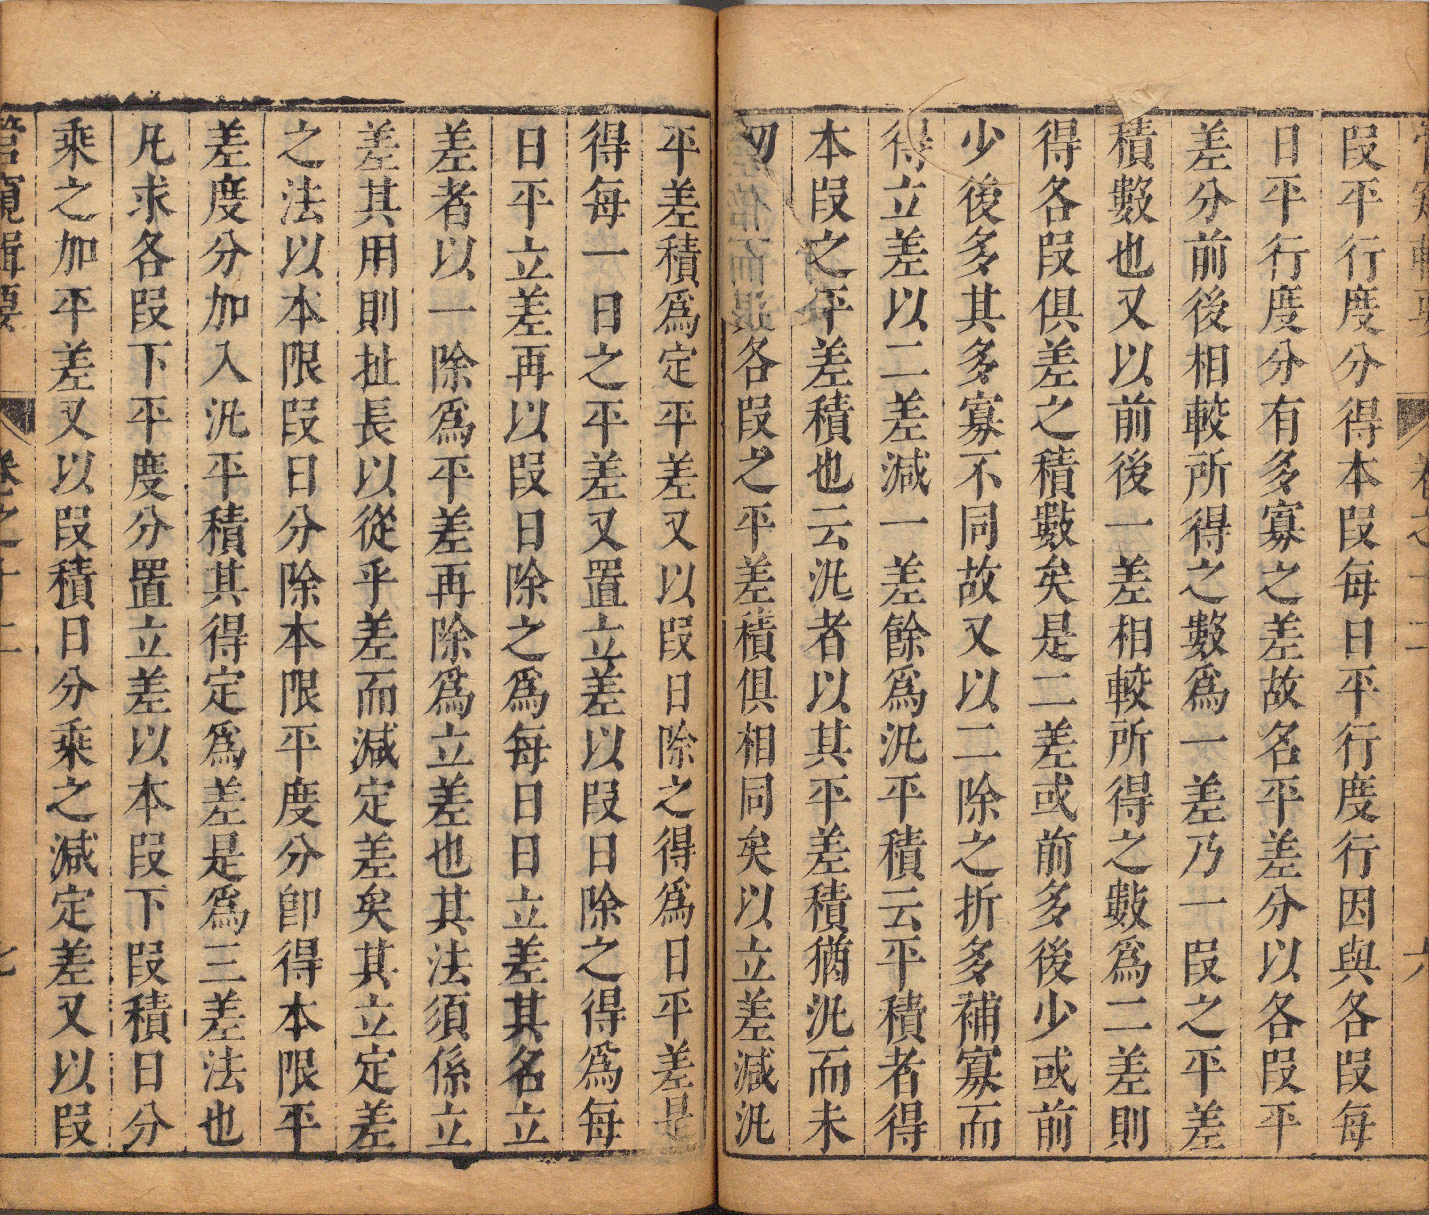 段平行度分得本段每日平行度行因與各段每
日平行度分有多寡之差故名平差分以各段平
差分前後相較所得之數為一差乃一段之平差
積數也又以前後一差相較所得之數為二差則
得各段俱差之積數矣是二差或前多後少或前
少後多其多寡不同故又以二除之折多補寡而
得立差以二差減一差餘為汎平積云平積者得
本段之平差積也云汎者以其平差積猶汎而未
各段之平差積俱相同矣以立差減汎
平差積為定平差又以段日除之得為日平差是
得每一日之平差又置立差以段日除之得為每
日平立差再以段日除之為每日日立差其名立
差者以一除為平差再除為立差也其法須係立
差其用則扯長以從乎差而減定差矣其立定差
之法以本限段日分除本限平度分卽得本限平
差度分加入汎平積其得定為差是為三差法也
凡求各段下平度分置立差以本段下段積日分
乘之加平差又以段積日分乘之減定差又以段
管窺輯要 卷之十二 七